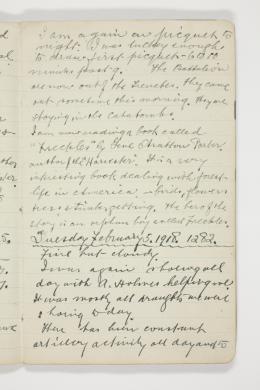 I am again on picquet to
night. I was lucky enough
to draw first picquet - 6 to 10
The Battalion
are now out of the trenches. they came
out sometime this morning. They are
staying in the Catacombs.
I am now reading a book called
"Freckles" by Gene Stratton Porter,
author of Harvester. It is a very
interesting book dealing with forest
life in America, birds, flowers
trees & timber getting. The hero of the
story is an orphan boy called Freckles.
Tuesday February 5. 1918. 1282.
Fine but cloudy.
I was again shoeing all
day with A. Holmes helping me.
It was mostly all draughts we were
shoeing to-day.
There has been constant
artillery activity all day and to